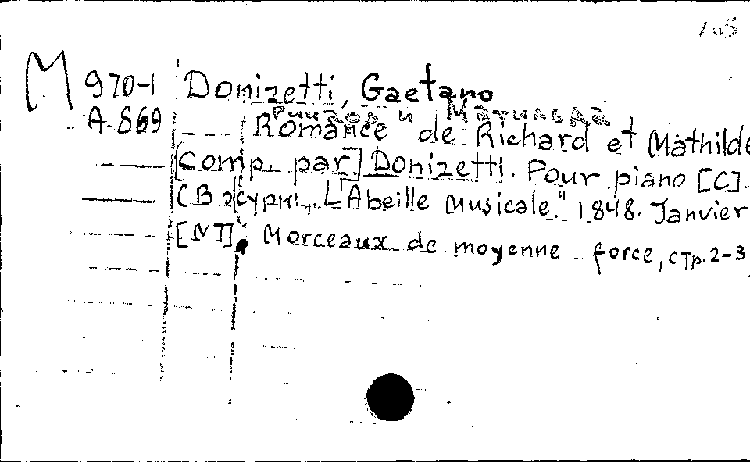 M 970-1 Donizetti, Gaetano
A 869 Romance de Richard et Mathilde
[Comp. par] Donizetti. Pour piano [C].
(В журн. "L'Abeille musicale." 1848. Janvier
[NT]. Morceaux de moyenne force, стр. 2-3